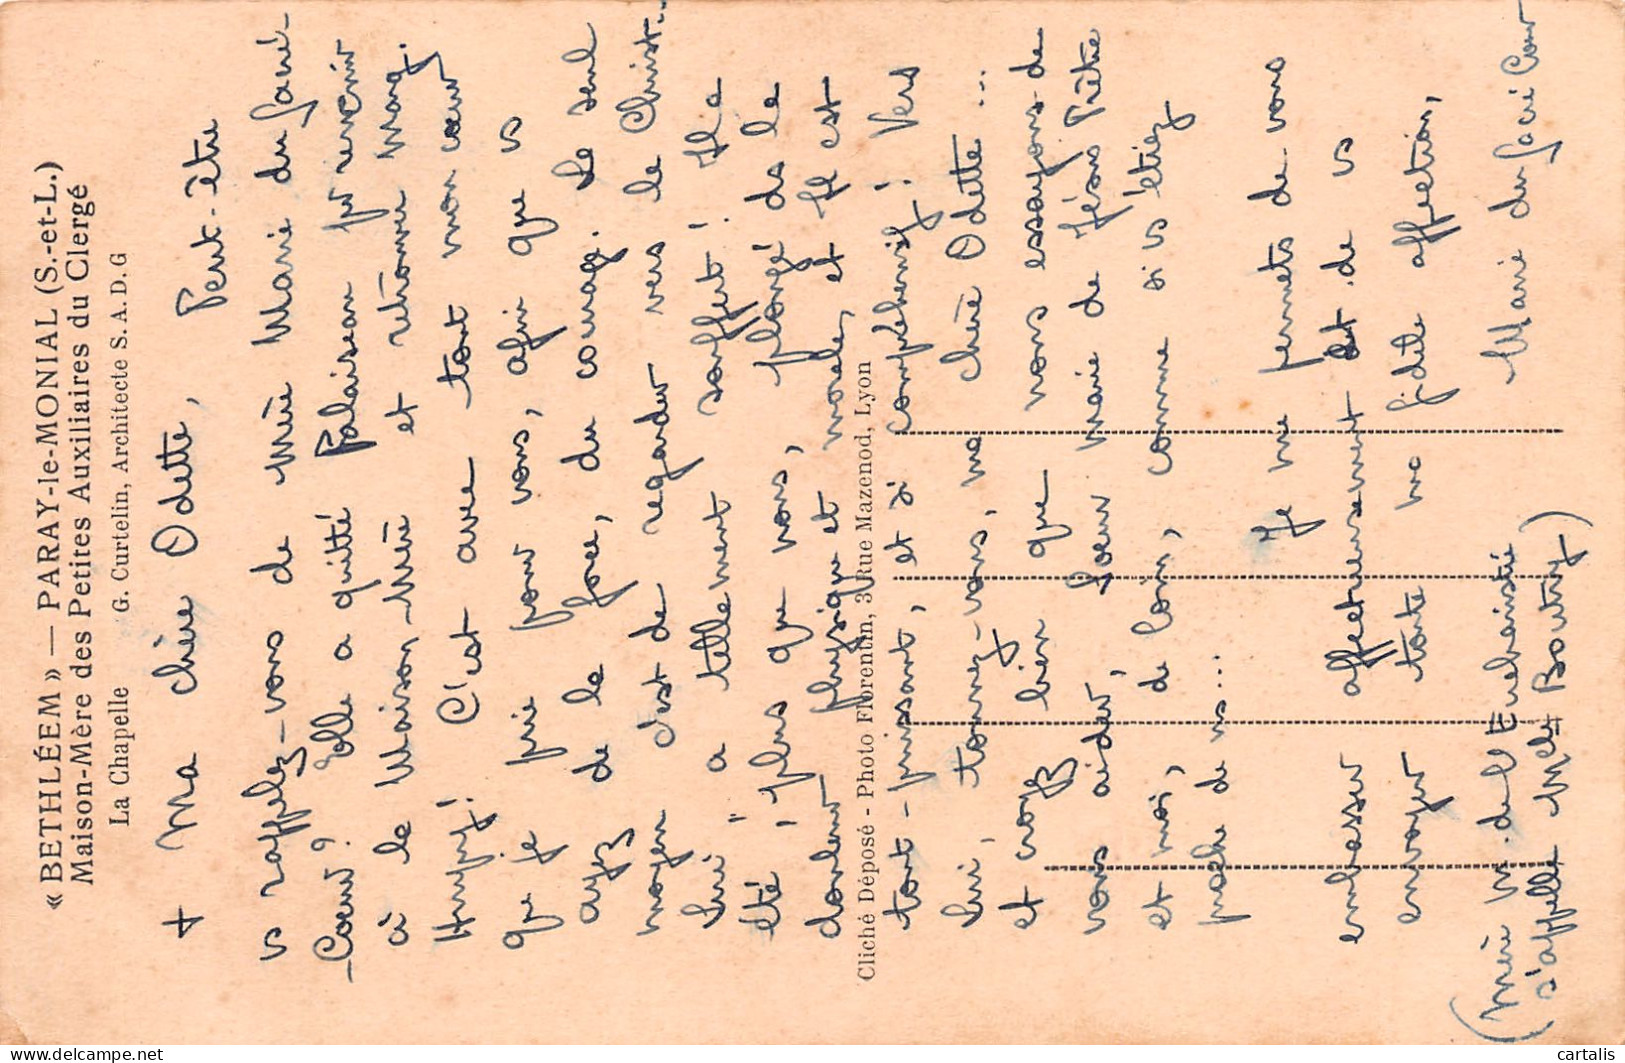 « BETHLÉEM » — PARAY-le-MONIAL (S.-et-L.)
Maison-Mère des Petites Auxiliaires du Clergé
La Chapelle G. Curtelin, Architecte S. A. D. G
+ Ma chère Odette, Peut-être
vs rappelez-vous de Mère Marie du Sacré-
-Cœur? Elle a quitté Palaiseau pr revenir
à la Maison-Mère et retrouver Marg.
C'est avec tout mon cœur
que je prie pour vous, afin que vs
ayez de la force, du courage. Le seul
moyen c'est de regarder vers le Christ...
Lui" a tellement souffert! Il a
été, plus que vous, plongé ds la
douleur physique et morale, et Il est
Cliché Déposé - Photo Florentin, 3 Rue Mazenod, Lyon
tout-puissant, et si compréhensif! Vers
Lui, tournez-vous, ma chère Odette...
et croyez bien que nous essayons de
vous aider, Sœur Marie de Jésus Prêtre
et moi, de loin, comme si vs étiez
proche de ns...
Je me permets de vous
embrasser affectueusement et de vs
envoyer toute ma fidèle affection,
Marie du Sacré Cœur
(Mère M. de l'Eucharistie
s'appelle Melle Boutry)
cartalis